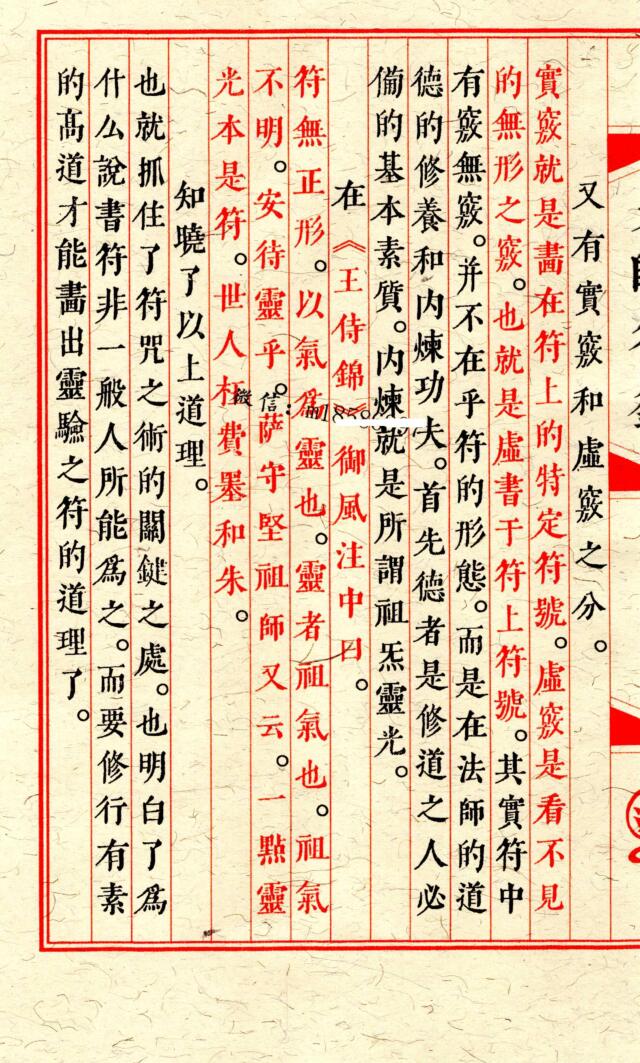 又有實竅和虛竅之分。
實竅就是畵在符上的特定符號。虛竅是看不見
的無形之竅。也就是虛書于符上符號。其實符中
有竅無竅。并不在乎符的形態。而是在法師的道
德的修養和内煉功夫。首先德者是修道之人必
備的基本素質。内煉就是所謂祖炁靈光。
在《王侍錦》御風注中曰。
符無正形。以氣爲靈也。靈者祖氣也。祖氣
不明。安待靈乎。薩守堅祖師又云。一點靈
光本是符。世人枉費墨和朱。
知曉了以上道理。
也就抓住了符咒之術的關鍵之處。也明白了爲
什么說書符非一般人所能爲之。而要修行有素
的高道才能畵出靈驗之符的道理了。
微信: